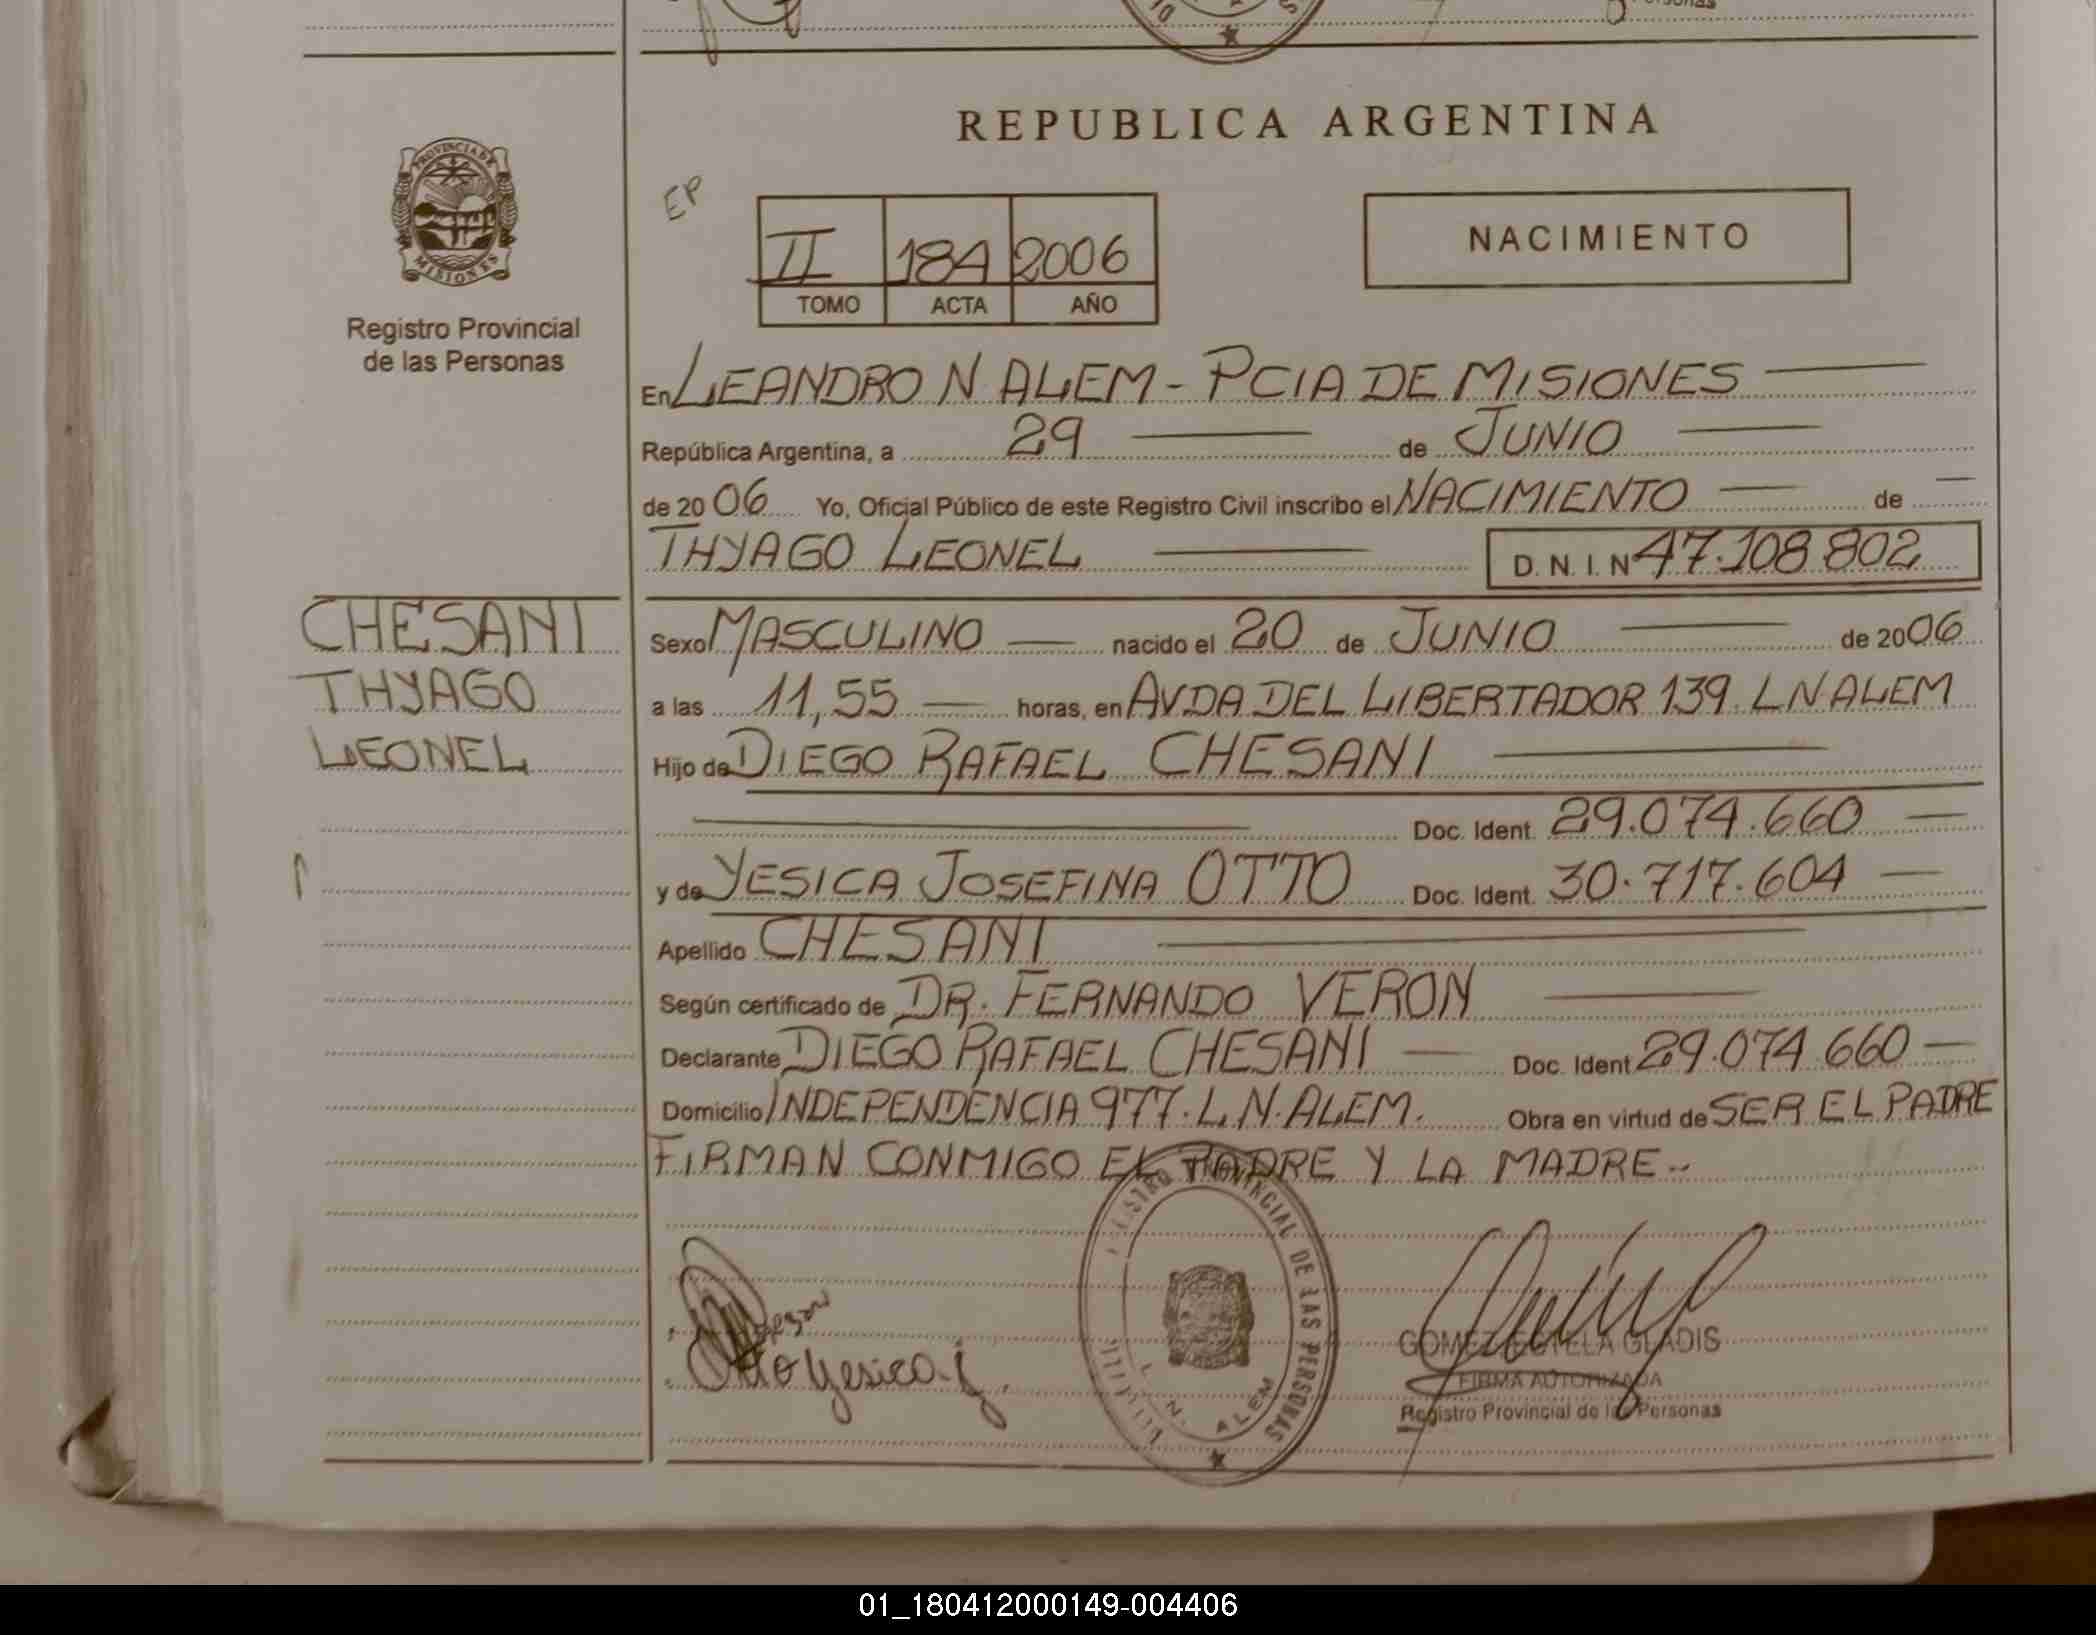 REPUBLICA ARGENTINA
PROVINCIA DE
MISIONES
Registro Provincial
de las Personas
EP
II 184 2006
TOMO ACTA AÑO
NACIMIENTO
En LEANDRO N ALEM - PCIA DE MISIONES
República Argentina, a 29 de JUNIO
de 2006 Yo, Oficial Público de este Registro Civil inscribo el NACIMIENTO de
THYAGO LEONEL D. N. I. Nº 47.108.802
CHESANI
THYAGO
LEONEL
Sexo MASCULINO nacido el 20 de JUNIO de 2006
a las 11,55 horas, en AVDA DEL LIBERTADOR 139. L N ALEM
Hijo de DIEGO RAFAEL CHESANI
Doc. Ident. 29.074.660
y de YESICA JOSEFINA OTTO Doc. Ident. 30.717.604
Apellido CHESANI
Según certificado de DR. FERNANDO VERON
Declarante DIEGO RAFAEL CHESANI Doc. Ident 29.074.660
Domicilio INDEPENDENCIA 977. L.N. ALEM. Obra en virtud de SER EL PADRE
FIRMAN CONMIGO EL PADRE Y LA MADRE--
REGISTRO PROVINCIAL DE LAS PERSONAS
L. N. ALEM
Otto Yesica. j.
GOMEZ ESTELA GLADIS
FIRMA AUTORIZADA
Registro Provincial de las Personas
01_180412000149-004406